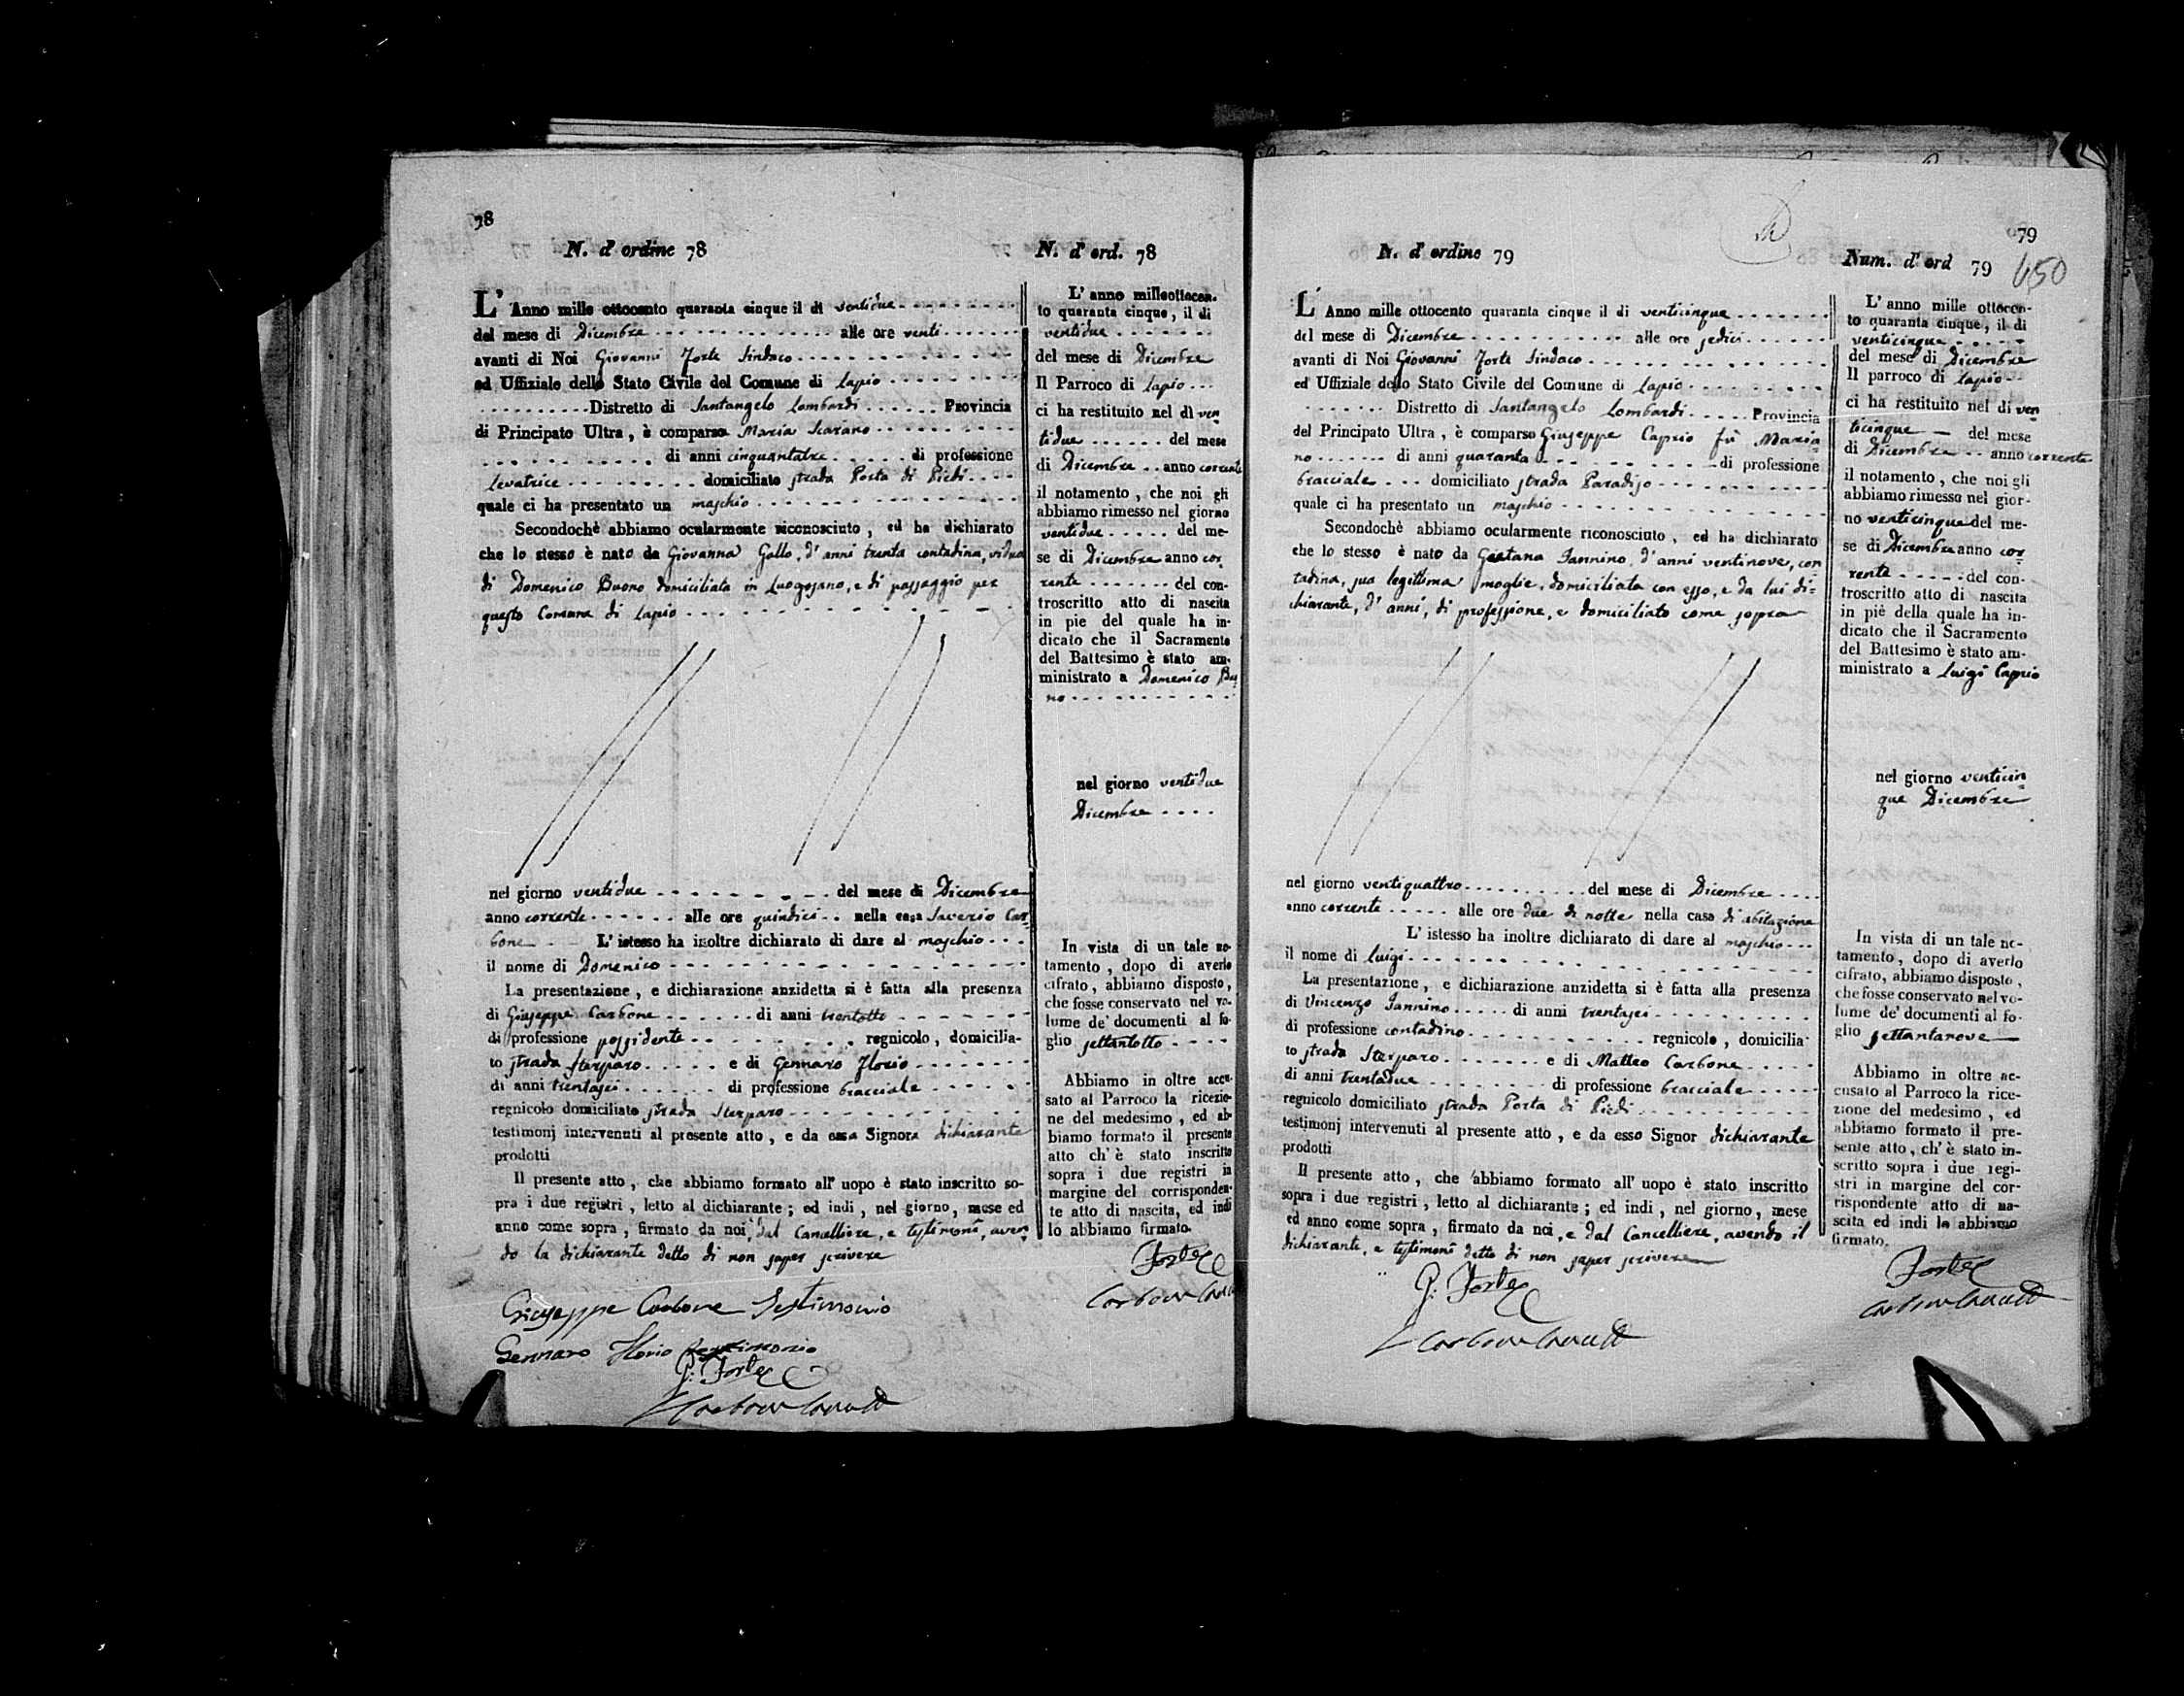 78
N. d' ordine 78
L' Anno mille ottocento quaranta cinque il di ventidue
del mese di Dicembre alle ore venti
avanti di Noi Giovanni Forte Sindaco
ed Uffiziale dello Stato Civile del Comune di Lapio
Distretto di Santangelo Lombardi Provincia
di Principato Ultra, è comparsa Maria Scarano
di anni cinquantatre di professione
Levatrice domiciliata strada Porta di Piedi
quale ci ha presentato un maschio
Secondochè abbiamo ocularmente riconosciuto, ed ha dichiarato
che lo stesso è nato da Giovanna Gallo, d' anni trenta contadina, vidua
di Domenico Buono domiciliata in Luogosano, e di passaggio per
questo Comune di Lapio
nel giorno ventidue del mese di Dicembre
anno corrente alle ore quindici nella casa Saverio Car-
bone L' istesso ha inoltre dichiarato di dare al maschio
il nome di Domenico
La presentazione, e dichiarazione anzidetta si è fatta alla presenza
di Giuseppe Carbone di anni trentotto
di professione possidente regnicolo, domicilia-
to strada Sterparo e di Gennaro Florio
di anni trentasei di professione bracciale
regnicolo domiciliato strada Sterparo
testimonj intervenuti al presente atto, e da essa Signora dichiarante
prodotti
Il presente atto, che abbiamo formato all' uopo è stato inscritto so-
pra i due registri, letto al dichiarante; ed indi, nel giorno, mese ed
anno come sopra, firmato da noi, dal Cancelliere, e testimoni, aven-
do la dichiarante detto di non saper scrivere
Giuseppe Carbone Testimonio
Gennaro Florio testimonio
G. Forte
N. d' ord. 78
L' anno milleottocen-
to quaranta cinque, il di
ventidue
del mese di Dicembre
Il Parroco di Lapio
ci ha restituito nel dì ven
tidue del mese
di Dicembre anno corrente
il notamento, che noi gli
abbiamo rimesso nel giorno
ventidue del me-
se di Dicembre anno cor
rente del con-
troscritto atto di nascita
in pie del quale ha in-
dicato che il Sacramento
del Battesimo è stato am-
ministrato a Domenico Buo
no
nel giorno ventidue
Dicembre
In vista di un tale no-
tamento, dopo di averlo
cifrato, abbiamo disposto,
che fosse conservato nel vo-
lume de' documenti al fo-
glio settantotto
Abbiamo in oltre accu-
sato al Parroco la ricezio-
ne del medesimo, ed ab-
biamo formato il presente
atto ch' è stato inscritto
sopra i due registri in
margine del corrisponden-
te atto di nascita, ed indi
lo abbiamo firmato.
Forte
79
N. d' ordine 79
L' Anno mille ottocento quaranta cinque il di venticinque
del mese di Dicembre alle ore sedici
avanti di Noi Giovanni Forte Sindaco
ed Uffiziale dello Stato Civile del Comune di Lapio
Distretto di Santangelo Lombardi Provincia
del Principato Ultra, è comparso Giuseppe Caprio fù Maria
no di anni quaranta di professione
bracciale domiciliato strada Paradiso
quale ci ha presentato un maschio
Secondochè abbiamo ocularmente riconosciuto, ed ha dichiarato
che lo stesso è nato da Gaetana Iannino, d' anni ventinove, con
tadina, sua legittima moglie, domiciliata con esso, e da lui di=
chiarante, d' anni, di professione, e domiciliato come sopra
nel giorno ventiquattro del mese di Dicembre
anno corrente alle ore due di notte nella casa di abitazione
L' istesso ha inoltre dichiarato di dare al maschio
il nome di Luigi
La presentazione, e dichiarazione anzidetta si è fatta alla presenza
di Vincenzo Iannino di anni trentasei
di professione contadino regnicolo, domicilia-
to strada Sterparo e di Matteo Carbone
di anni trentadue di professione bracciale
regnicolo domiciliato strada Porta di Piedi
testimonj intervenuti al presente atto, e da esso Signor dichiarante
prodotti
Il presente atto, che abbiamo formato all' uopo è stato inscritto
sopra i due registri, letto al dichiarante; ed indi, nel giorno, mese
ed anno come sopra, firmato da noi, e dal Cancelliere, avendo il
dichiarante, e testimoni detto di non saper scrivere
G. Forte
Num. d' ord 79
650
L' anno mille ottocen-
to quaranta cinque, il di
venticinque
del mese di Dicembre
Il parroco di Lapio
ci ha restituito nel di ven
ticinque del mese
di Dicembre anno corrente
il notamento, che noi gli
abbiamo rimesso nel gior-
no venticinque del me-
se di Dicembre anno cor
rente del con-
troscritto atto di nascita
in piè della quale ha in-
dicato che il Sacramento
del Battesimo è stato am-
ministrato a Luigi Caprio
nel giorno venticin
que Dicembre
In vista di un tale no-
tamento, dopo di averlo
cifrato, abbiamo disposto,
che fosse conservato nel vo-
lume de' documenti al fo-
glio settantanove
Abbiamo in oltre ac-
cusato al Parroco la rice-
zione del medesimo, ed
abbiamo formato il pre-
sente atto, ch' è stato in-
scritto sopra i due regi-
stri in margine del cor-
rispondente atto di na-
scita ed indi lo abbiamo
firmato.
Forte